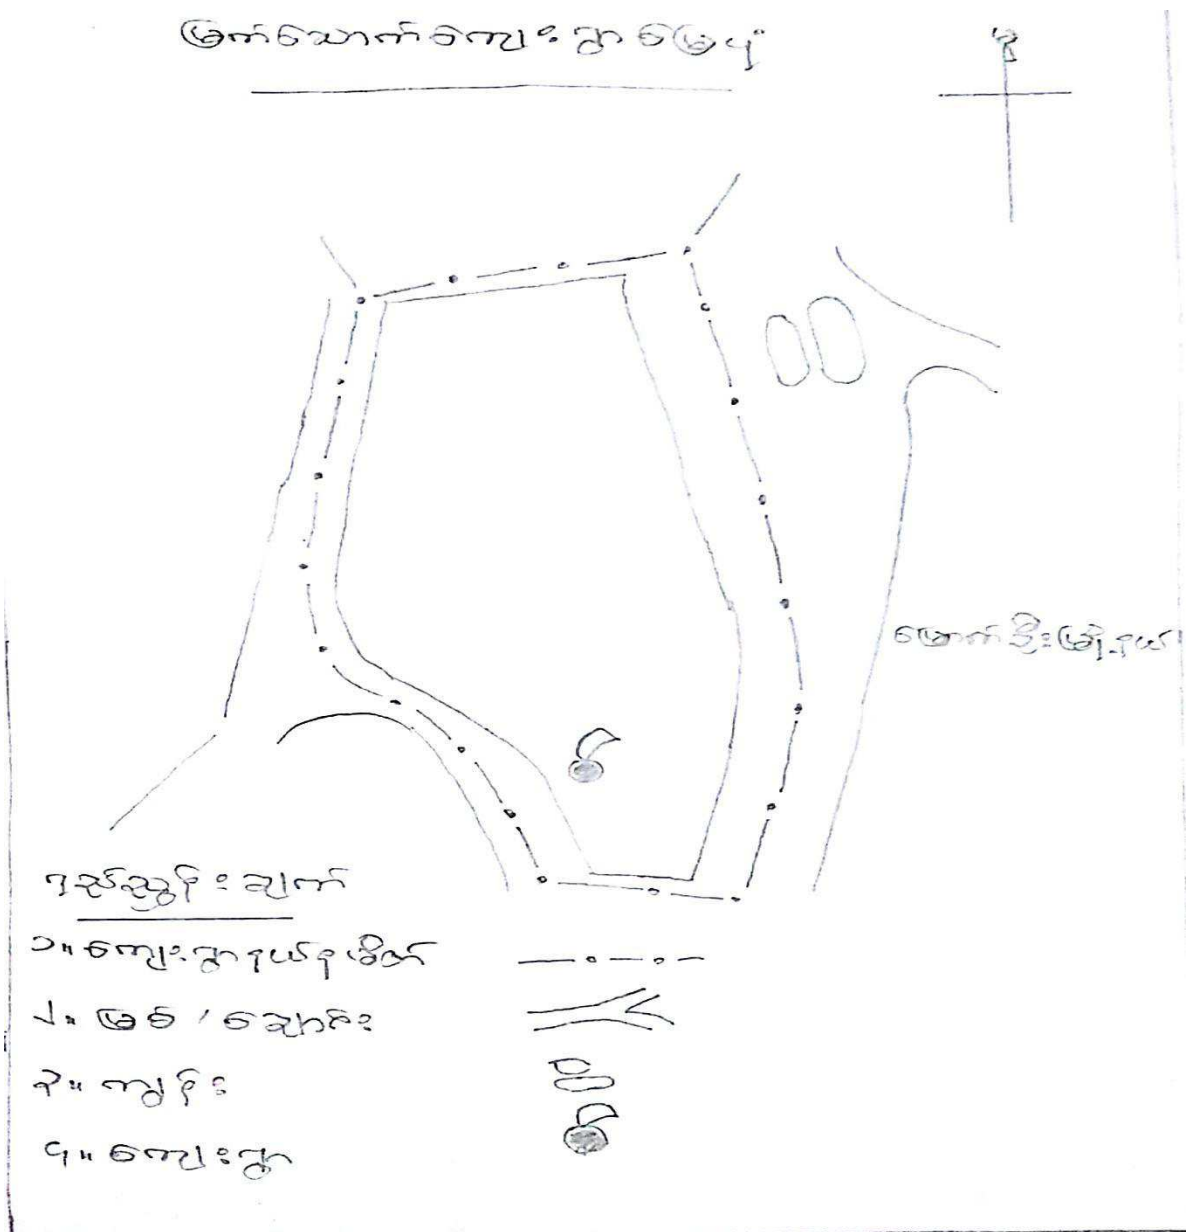 မြက်သောက်ကျေးရွာမြေပုံ
မြောက်ဦးမြို့နယ်
ရည်ညွှန်းချက်
၁။ ကျေးရွာနယ်နမိတ်
၂။ မြစ် / ချောင်း
၃။ ကျွန်း
၄။ ကျေးရွာ